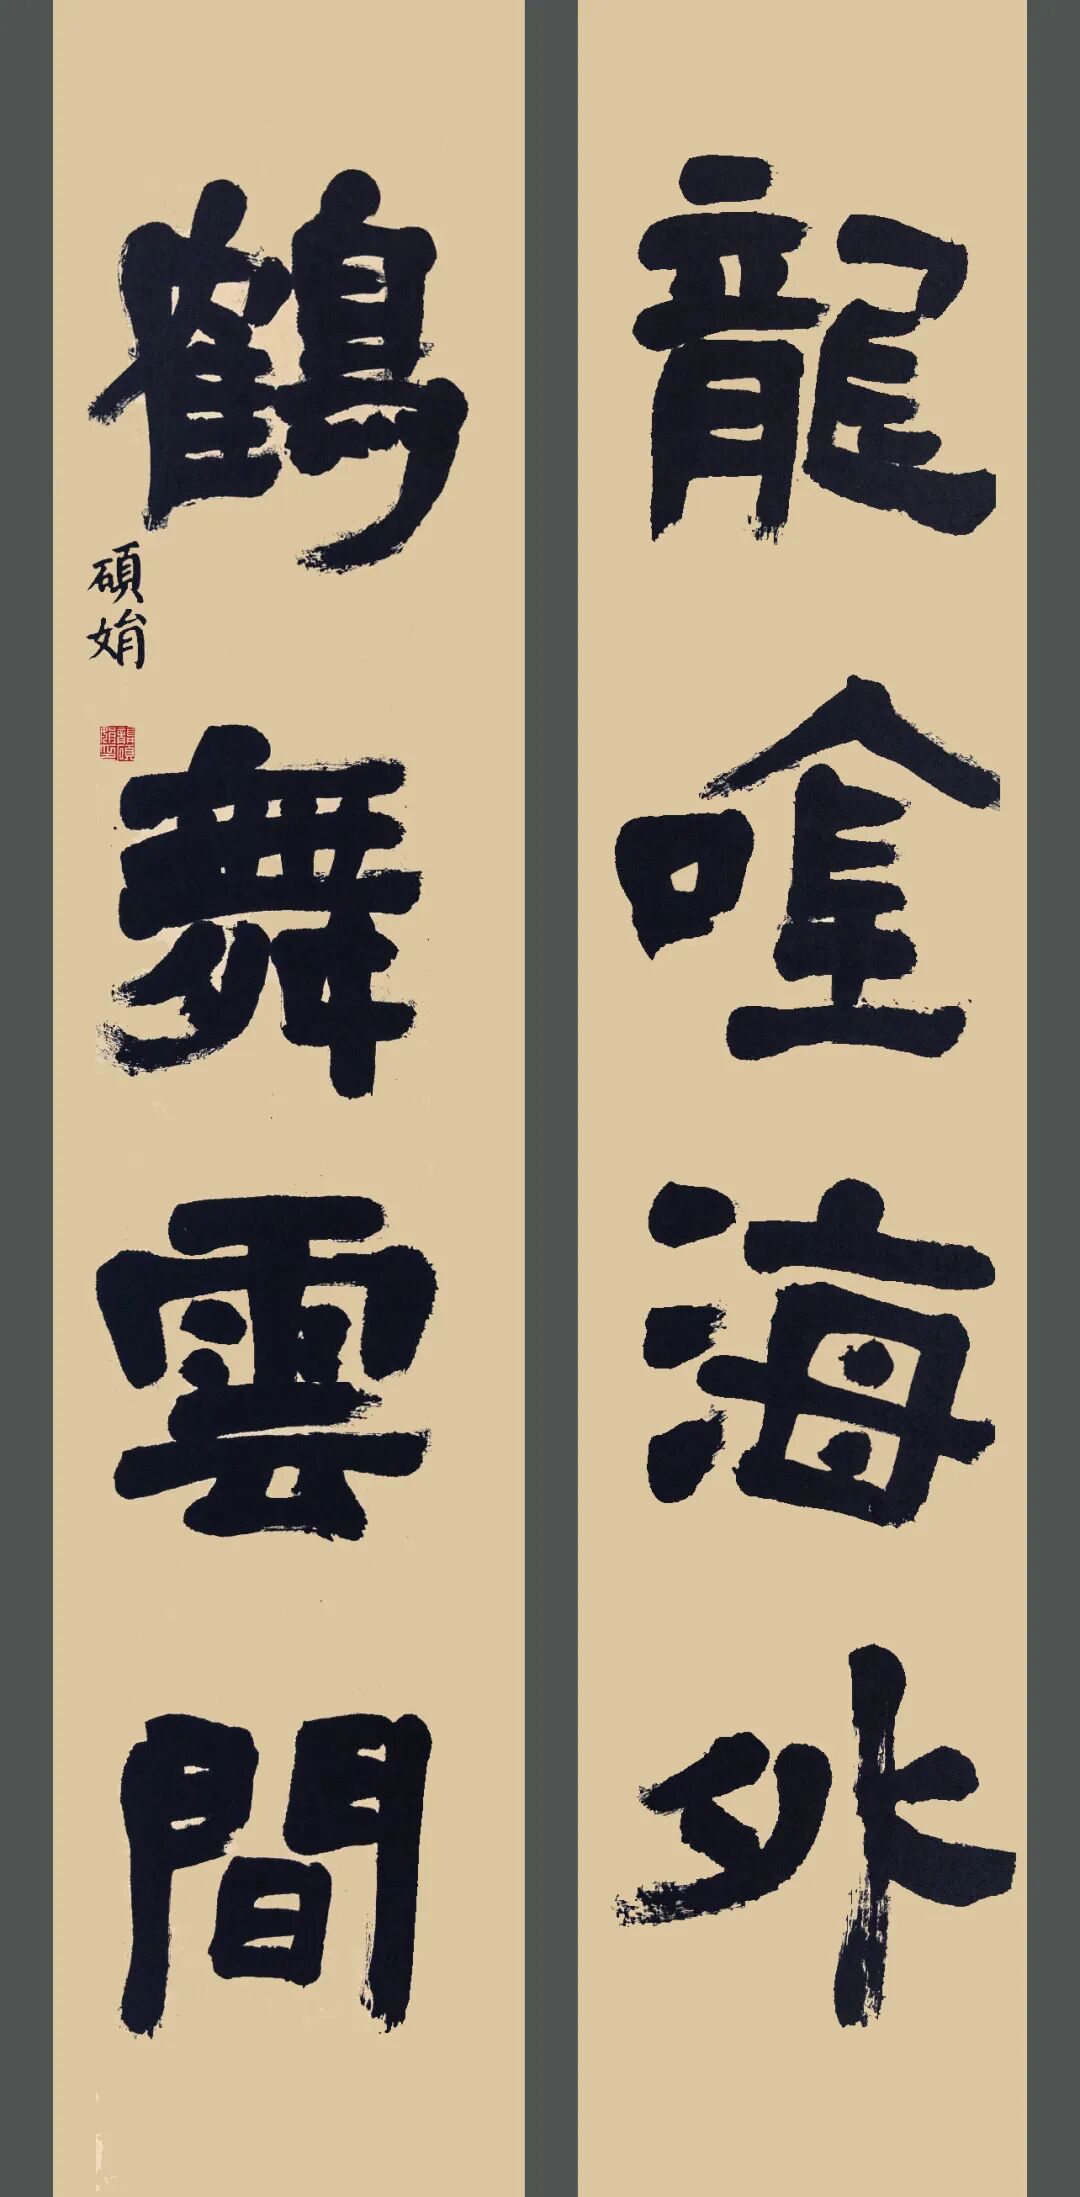 龍唫海外
鶴舞雲間
碩娟